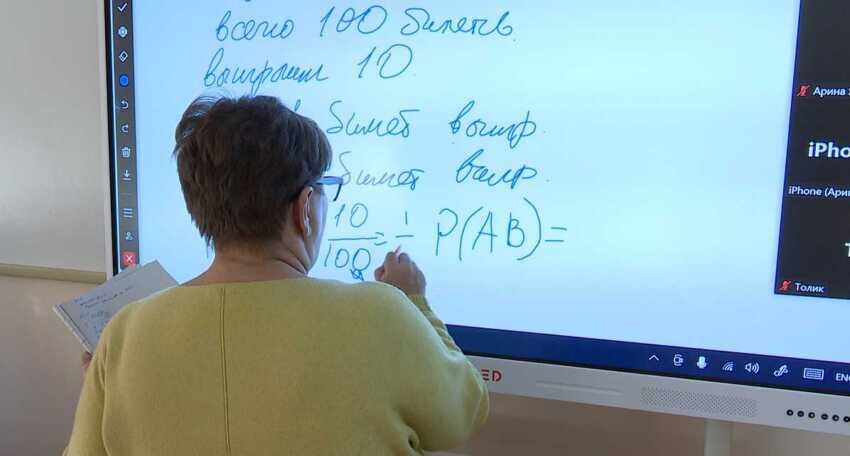 всего 100 билетов
выигрыш 10
билет выигр.
билет выигр.
10/100 = 1/ P(AB)=
Арина
iPho
iPhone (Ари
Толик
EN
ED